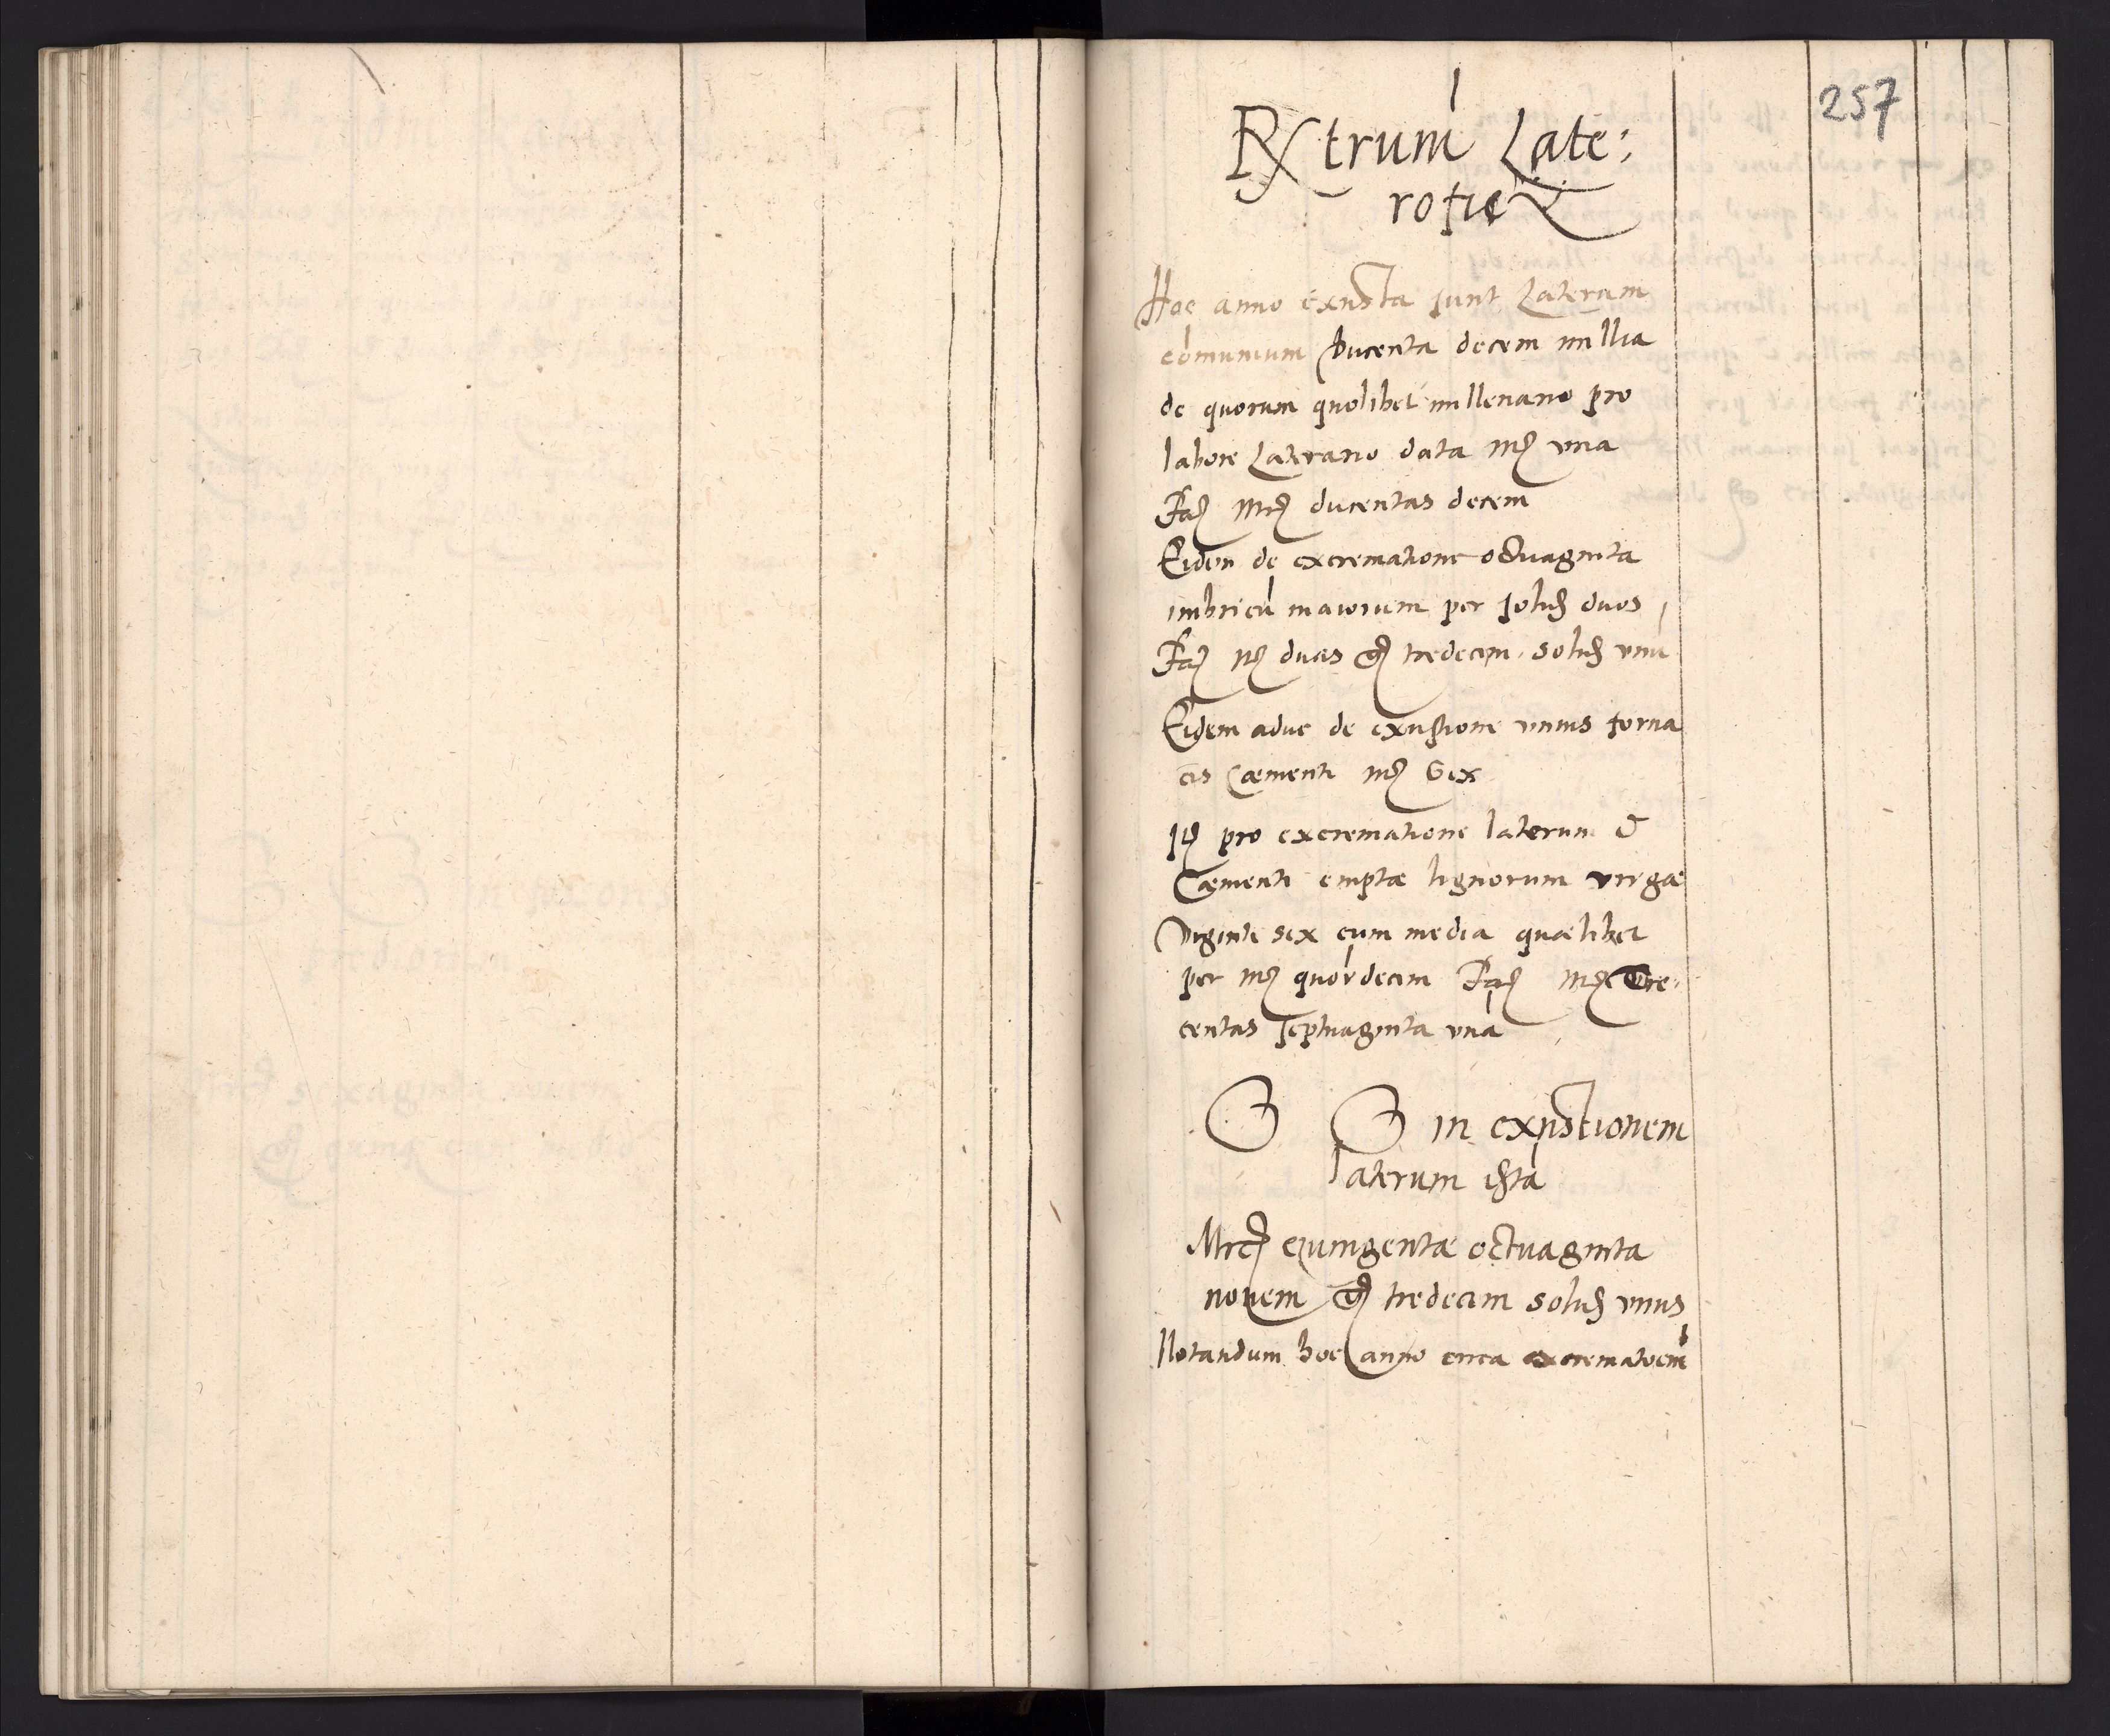 257
Rxtrum Late:
rotie
Hoc anno exusta sunt Laterum
comunium Ducenta decem millia
de quorum quolibet millenario pro
labore Laterario data mrc una
Fac Mrc ducentas decem
Eidem de excrematione octuaginta
imbricu maiorum per solid duos
Fac mrc duas gr tredecim solid unu
Eidem aduc de exustione unius forna
cis Cæmenti mrc Sex
It pro excrematione laterum &
Cæmenti emptæ lignorum virgæ
viginti sex cum media quælibet
per mrc quordecim Fac Mrc Tre-
centas septuaginta una
in exustionem
laterum ista
Mrc quingentæ octuaginta
novem gr tredecim solid unus
Notandum hoc anno circa excrematoem